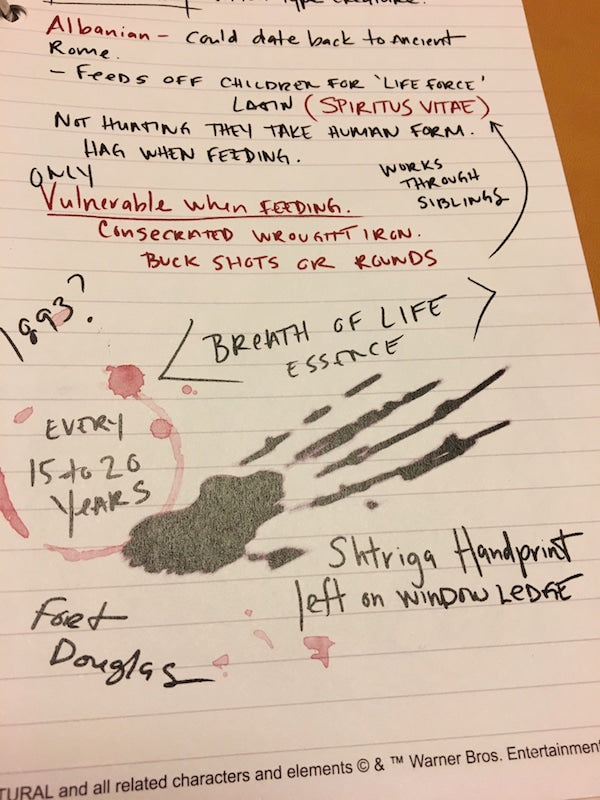 Type creature.
Albanian - Could date back to Ancient
Rome.
- Feeds off children for 'life force'
Latin (SPIRITUS VITAE)
Not hunting they take human form.
Hag when feeding.
ONLY
Vulnerable when FEEDING.
Consecrated wrought iron.
Buck shots or rounds
WORKS
THROUGH
SIBLINGS
1893?
BREATH OF LIFE
ESSENCE
EVERY
15 to 20
Years
Shtriga Handprint
left on window ledge
Fort
Douglas
TURAL and all related characters and elements © & ™ Warner Bros. Entertainment